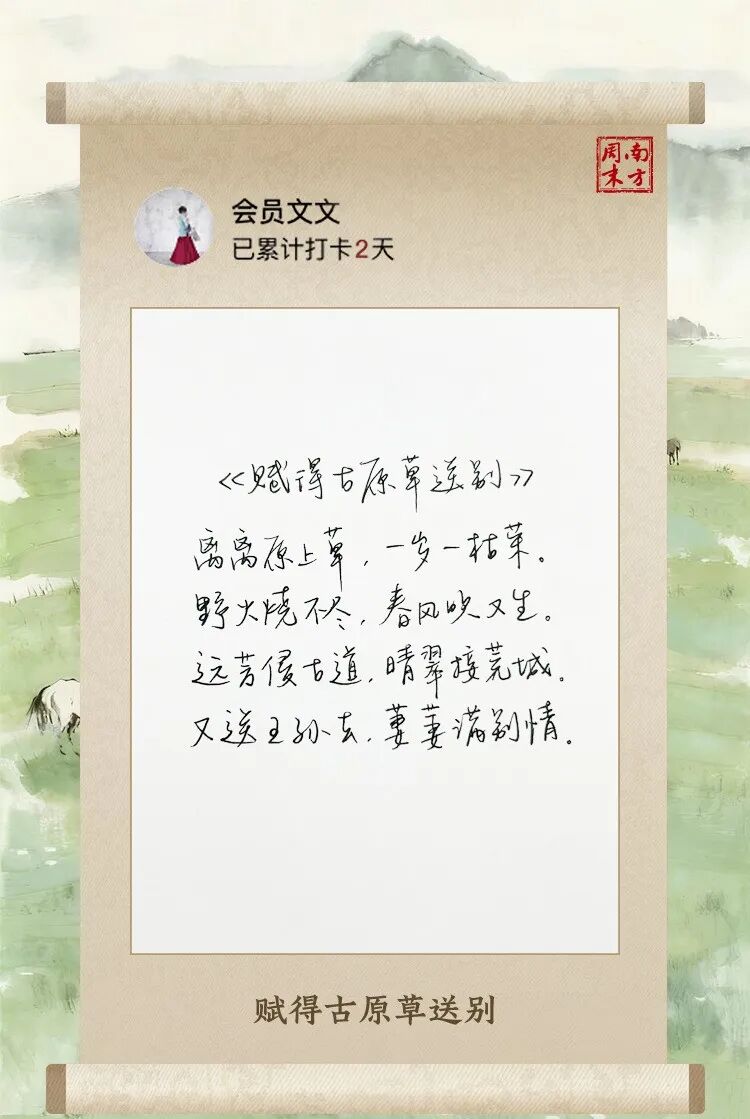 南方周末
会员文文
已累计打卡2天
《赋得古原草送别》
离离原上草，一岁一枯荣。
野火烧不尽，春风吹又生。
远芳侵古道，晴翠接荒城。
又送王孙去，萋萋满别情。
赋得古原草送别